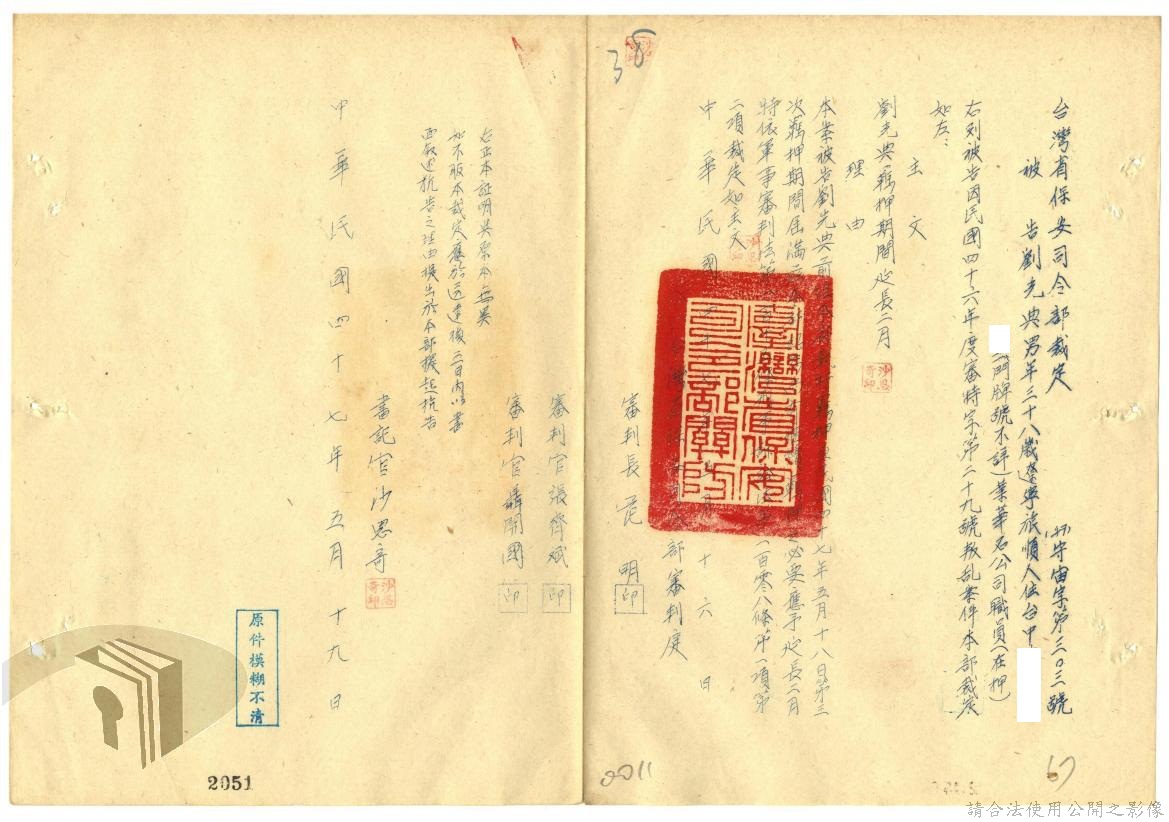 台灣省保安司令部裁定
(47)守宙字第三〇三號
被告劉光典男年三十八歲遼寧旅順人住台中
(門牌號不詳)業華石公司職員(在押)
右列被告因民國四十六年度審特字第二十九號叛乱案件本部裁定
如左:
主文
劉光典羈押期間延長二月
理由
本案被告劉光典前經本部裁定羈押 四十七年五月十八日第三
次羈押期間屆滿 必要應予延長二月
特依軍事審判法第 一百零八條第一項第
二項裁定如主文
中華民國四十七年五月十六日
部審判庭
審判長 范明 印
審判官 張齊斌 印
審判官 聶開國 印
右正本証明與原本無異
如不服本裁定應於送達後 日內以書
面敘述抗告之理由提出於本部提起抗告
書記官 沙思奇
中華民國四十七年五月十九日
台灣省保安司令部關防
原件模糊不清
38
2051
2011
67
請合法使用公開之影像